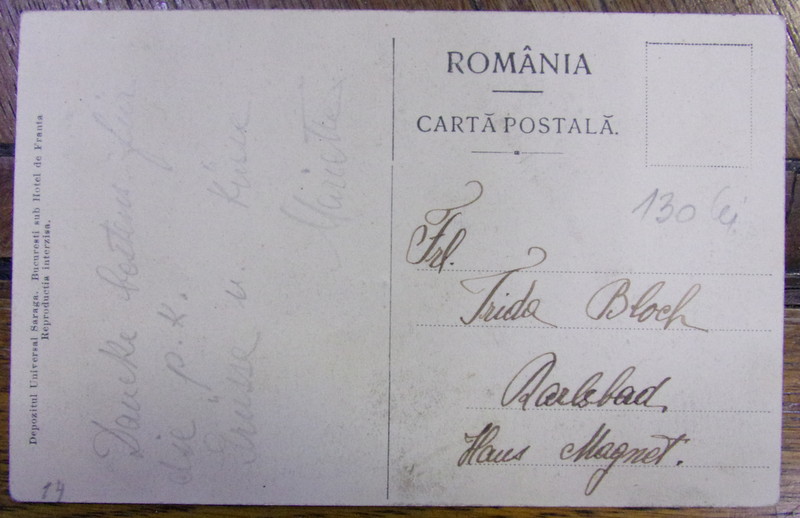 Depozitul Universal Saraga, Bucuresti sub Hotel de Franta
Reproductia interzisa.
Danke bestens für
die p.k.
Grüsse u. Küsse
Marietta
14
ROMÂNIA
CARTĂ POSTALĂ.
130 lei
Frl.
Frida Bloch
Karlsbad,
Haus Magnet.